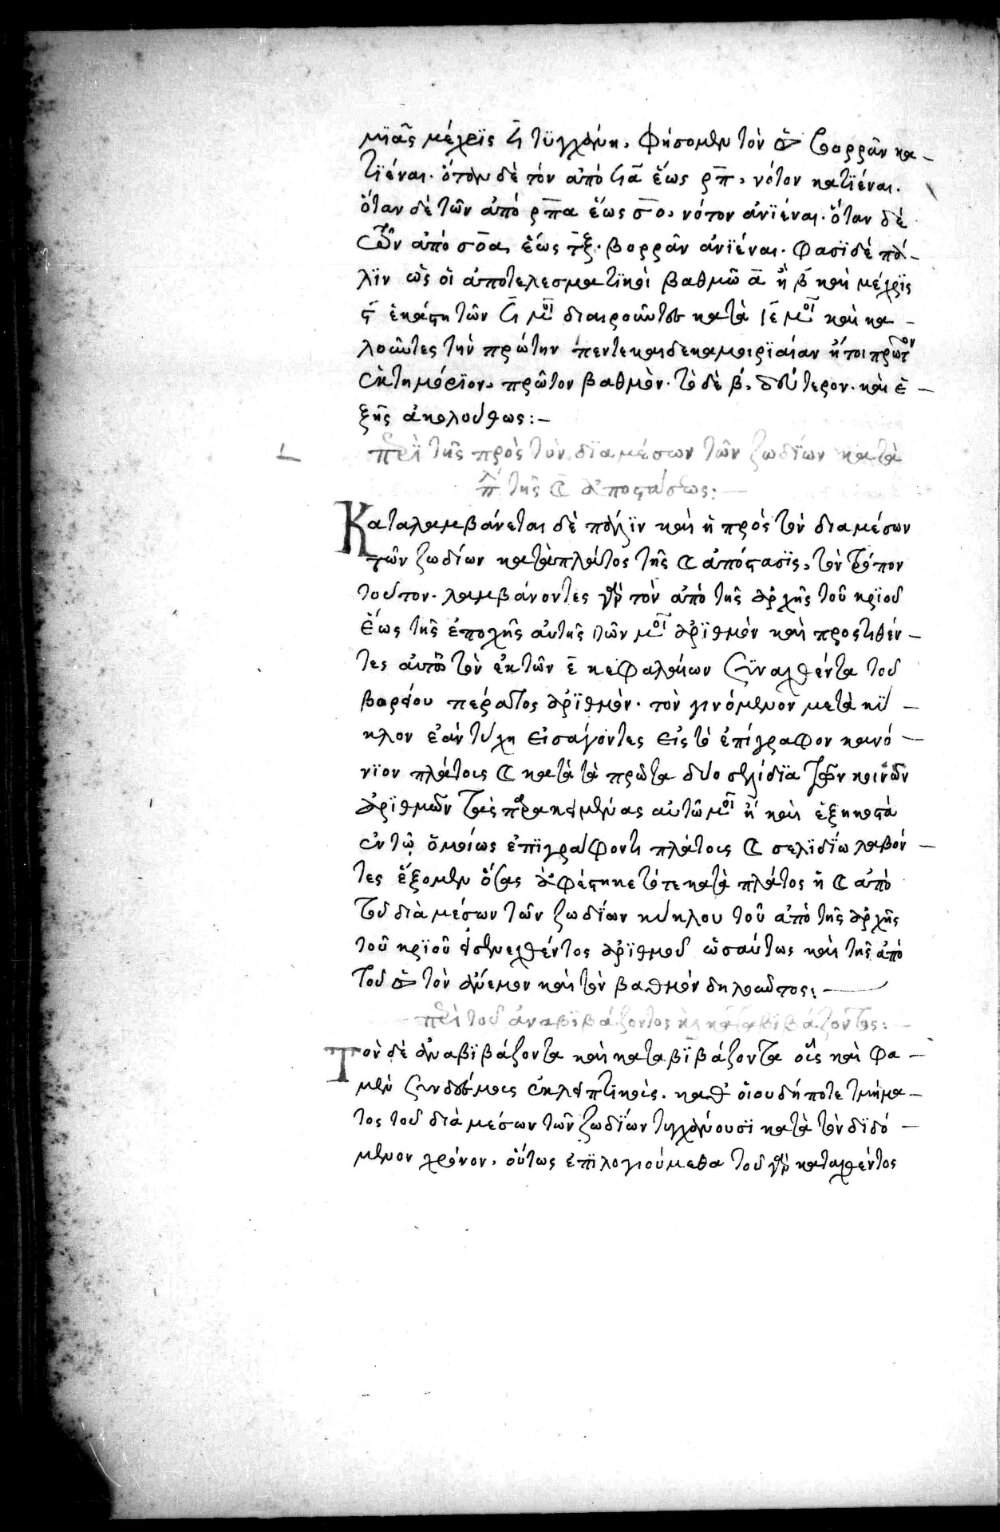 μϊας μέχρϊς ϟ τϋγχάνη, φήσομεν τὸν ☉ βορρᾶν κα –
τϊέναι. ὅταν δὲ τὸν ἀπὸ ϟα ἕως ρπ, νότον κατϊέναι.
ὅταν δὲ τῶν ἀπὸ ρπα ἕως σο, νότον ἀνϊέναι. ὅταν δὲ
τῶν ἀπὸ σοα, ἕως τξ. βορρᾶν ἀνϊέναι. φασϊ δὲ πά –
λϊν ὡς οἱ ἀποτελεσματϊκοὶ βαθμῶ α ἢ β καὶ μέχρϊς
ϛ ἑκάστη τῶν ϟ μοι διαιροῦντες κατὰ ιε μοι καὶ κα –
λοῦντες τὴν πρώτην πεντεκαιδεκαμοιρϊαίαν ἤτοι πρῶτον
ἑκτημόρϊον, πρῶτον βαθμόν. τὸ δὲ β, δεύτερον. καὶ ἑ –
ξῆς ἀκολούθως: –
περὶ τῆς πρὸς τὸν δϊα μέσων τῶν ζωδΐων κατὰ
πλ τῆς ☾ ἀποστάσεως: –
Καταλαμβάνεται δὲ πάλϊν καὶ ἡ πρὸς τὸν δια μέσων
τῶν ζωδίων κατὰ πλάτος τῆς ☾ ἀπόστασϊς, τὸν τρόπον
τοῦτον. λαμβάνοντες γὰρ τὸν ἀπὸ τῆς ἀρχῆς τοῦ κρϊοῦ
ἕως τῆς ἐποχῆς αὐτῆς τῶν μοι ἀρϊθμὸν καὶ προστιθέν –
τες αὐτῶ τὸν ἐκ τῶν ε κεφαλαίων συναχθέντα τοῦ
βορείου πέρατος ἀρϊθμόν. τὸν γινόμενον μετὰ κϋ –
κλον ἐὰν τύχη εἰσάγοντες εἰς τὸ ἐπίγραφον κανό –
νϊον πλάτους ☾ κατὰ τὰ πρῶτα δύο σελίδϊα τῶν κοινῶν
ἀρϊθμῶν τὰς παρακειμένας αὐτῶ μοι ἢ καὶ ἑξηκοστὰ
ἐν τῷ ὁμοίως ἐπϊγράφοντι πλάτους ☾ σελϊδΐω λαβόν –
τες ἕξομεν ὅσας ἀφέστηκε τότε κατὰ πλάτος ἡ ☾ ἀπὸ
τοῦ διὰ μέσων τῶν ζωδΐων κύκλου τοῦ ἀπὸ τῆς ἀρχῆς
τοῦ κρϊοῦ εἰσενεχθέντος ἀρϊθμοῦ ὡσαύτως καὶ τῆς ἀπὸ
τοῦ ☉ τὸν ἄνεμον καὶ τὸν βαθμὸν δηλοῦντος: –
περὶ τοῦ ἀναβϊβάζοντος καὶ καταβϊβάζοντος: –
Τὸν δὲ ἀναβϊβάζοντα καὶ καταβϊβάζοντα οὓς καὶ φα –
μὲν συνδέσμους ἐκλειπτϊκούς. καθ οἱουδήποτε τμήμα –
τος τοῦ διὰ μέσων τῶν ζωδίων τυγχάνουσϊ κατὰ τὸν διδό –
μενον χρόνον, οὕτως ἐπϊλογιούμεθα τοῦ γὰρ καταχθέντος